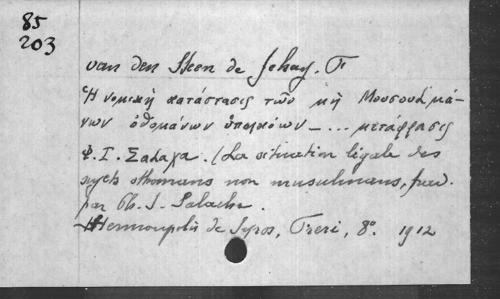 85
203
van den Steen de Jehay, F.
Ἡ νομικὴ κατάστασις τῶν μὴ Μουσουλμά-
νων ὀθομάνων ὑπηκόων — ... μετάφρασις
Φ. Ι. Σαλαχα. (La situation légale des
sujets ottomans non musulmans, trad.
par Ph. J. Salacha.
Hermoupolis de Syros, Freri, 8°. 1912